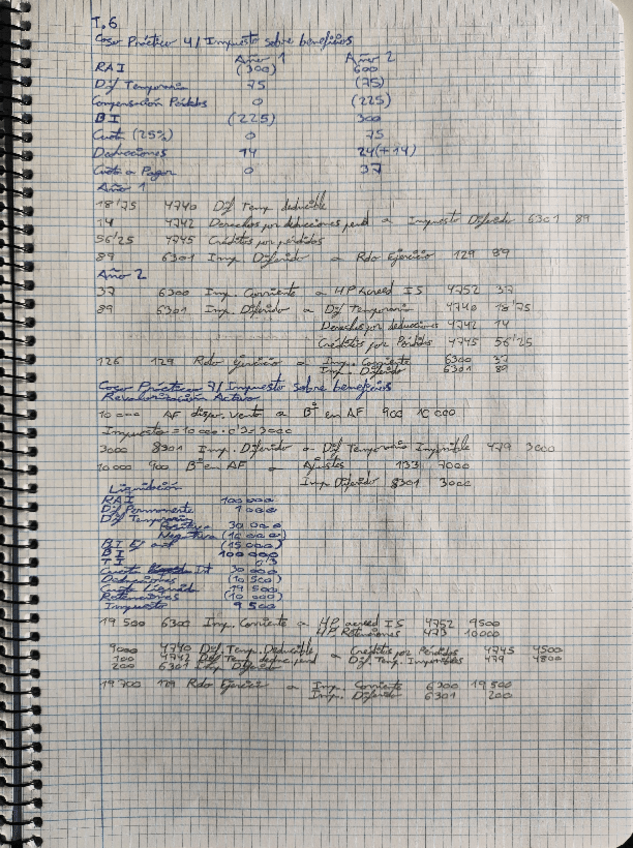 T.6
Caso Práctico 4/ Impuesto sobre beneficios
Año 1 Año 2
RAI (300) 600
Dif Temporaria 75 (75)
Compensación Pérdidas 0 (225)
BI (225) 300
Cuota (25%) 0 75
Deducciones 14 24(+14)
Cuota a Pagar 0 37
Año 1
18'75 4740 Dif Temp. deducible
14 4742 Derechos por deducciones pend a Impuesto Diferido 6301 89
56'25 4745 Créditos por pérdidas
89 6301 Imp. Diferido a Rdo Ejercicio 129 89
Año 2
37 6300 Imp. Corriente a HP Acreed IS 4752 37
89 6301 Imp. Diferido a Dif Temporaria 4740 18'75
Derechos por deducciones 4742 14
Créditos por Pérdidas 4745 56'25
126 129 Rdo Ejercicio a Imp. Corriente 6300 37
Imp. Diferido 6301 89
Caso Práctico 7/ Impuesto sobre beneficios
Revalorización Activo
10 000 AF dispon. venta a Bº en AF 900 10 000
Impuesto = 10 000 · 0'3 = 3000
3000 8301 Imp. Diferido a Dif Temporaria Imponible 479 3000
10.000 900 Bº en AF a Ajustes 133 7000
Imp Diferido 8301 3000
Liquidación
RAI 100 000
Dif Permanente 1 000
Dif Temporaria
Positiva 30 000
Negativa
BI Ej ant (15 000)
BI 100 000
TI 0'3
Cuota Int 30 000
Deducciones (10 500)
Cuota Líquida 19 500
Retenciones (10 000)
Impuesto 9 500
19 500 6300 Imp. Corriente a HP acreed IS 4752 9500
HP Retenciones 473 10000
9000 4740 Dif Temp. Deducible a Créditos por Pérdidas 4745 4500
4742 Dif Temp. Imponibles 479 4800
200 6301 Imp Diferido
19 700 129 Rdo Ejercicio a Imp. Corriente 6300 19 500
Imp. Diferido 6301 200